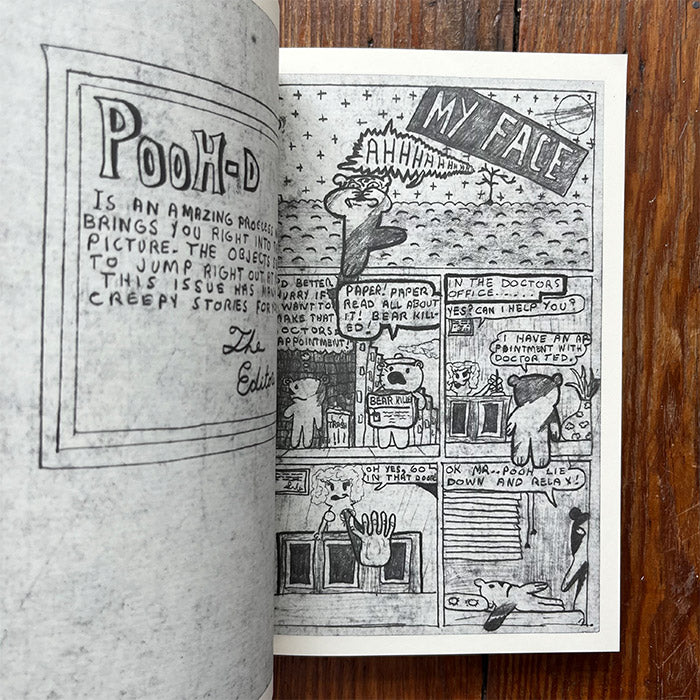 POOH-D
IS AN AMAZING PROCESS
BRINGS YOU RIGHT INTO
PICTURE. THE OBJECTS
TO JUMP RIGHT OUT AT
THIS ISSUE HAS
CREEPY STORIES FOR
The
Editor
MY FACE
AHHHAHHHH
BETTER
HURRY IF
WANT TO
MAKE THAT
DOCTORS
APPOINTMENT!
PAPER! PAPER
READ ALL ABOUT
IT! BEAR KILL-
ED!
TRASH
BEAR KILLED
IN THE DOCTORS
OFFICE......
YES? CAN I HELP YOU?
I HAVE AN AP
POINTMENT WITH
DOCTOR TED.
OH YES, GO
IN THAT DOOR
OK MR.. POOH LIE
DOWN AND RELAX!